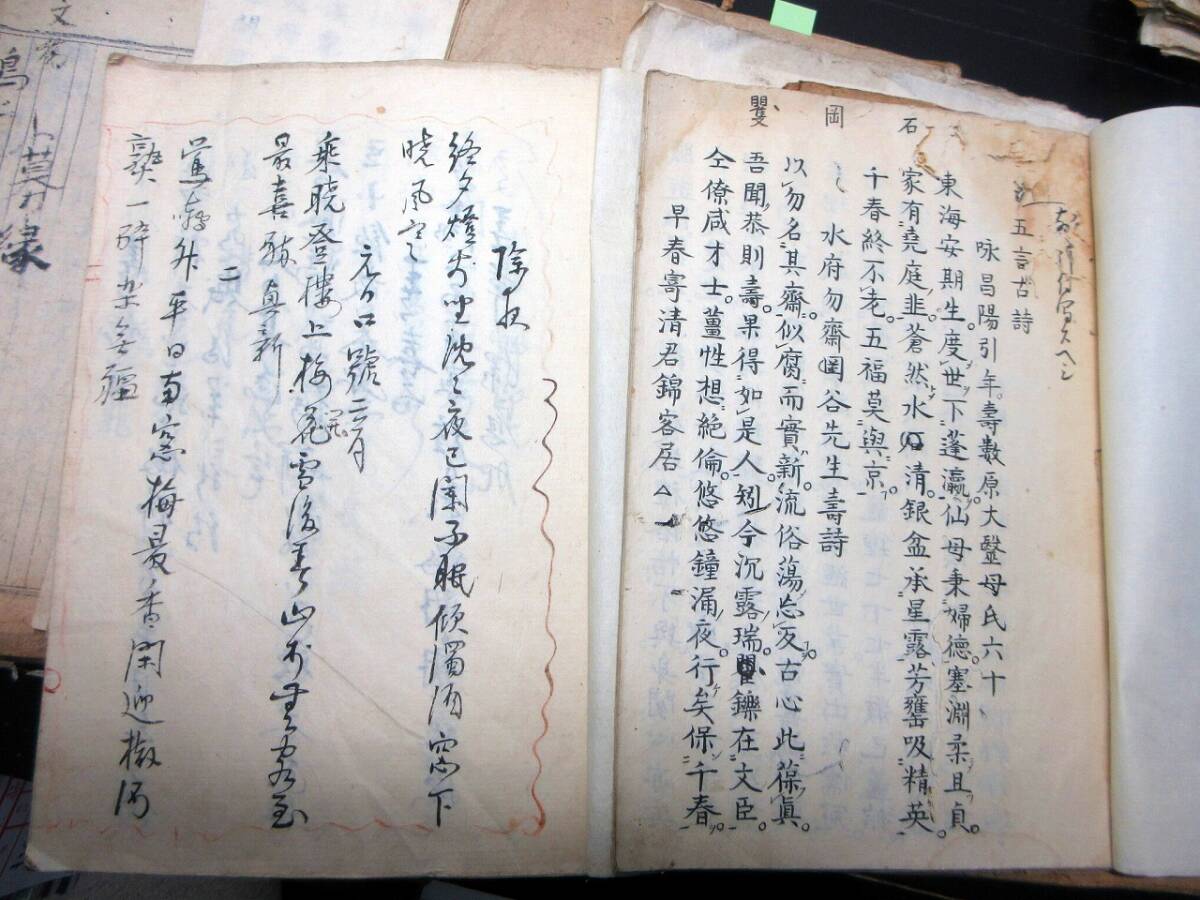 五言古詩
咏昌陽引年壽數原大毉母氏六十
東海安期生度世下蓬瀛仙母秉婦德塞淵柔且貞
家有堯庭韭蒼然水石清銀盆承星露芳罍吸精英
千春終不老五福莫與京
水府勿齋岡谷先生壽詩
以勿名其齋似腐而實新流俗蕩忘反古心此葆眞
吾聞恭則壽果得如是人矧今沉露瑞矍鑠在文臣
仝僚咸才士薑性想絶倫悠悠鐘漏夜行矣保千春
早春寄清君錦客居
石
岡
矍
除夜
終夕燈前坐沈々夜已闌不眠傾濁酒窓下
曉風寒
元日口號 二首
乘曉登樓上梅花雪後春山
最喜 眞新
二
鶯 平日南窓梅最香閑迎椒酒
一醉樂無疆